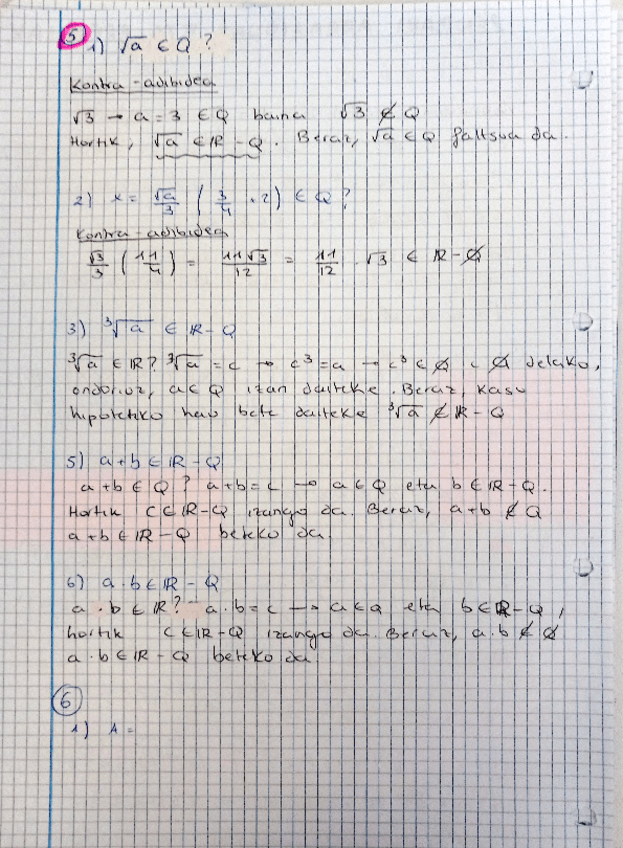 5 1) √a ∈ Q ?
Kontra-adibidea
√3 → a = 3 ∈ Q baina √3 ∉ Q
Hortik, √a ∈ R - Q. Beraz, √a ∈ Q faltsua da.
2) x = √a/3 (3/4 + 2) ∈ Q ?
Kontra-adibidea
√3/3 (11/4) = 11√3/12 = 11/12 · √3 ∈ R - Q
3) ³√a ∈ R - Q
³√a ∈ R? ³√a = c → c³ = a → c³ ∈ Q c Q delako,
ondorioz, a ∈ Q izan daiteke. Beraz, kasu
hipotetiko hau bete daiteke ³√a ∉ R - Q
5) a+b ∈ R - Q
a+b ∈ Q ? a+b = c → a ∈ Q eta b ∈ R - Q.
Hortik c ∈ R - Q izango da. Beraz, a+b ∉ Q
a+b ∈ R - Q beteko da.
6) a · b ∈ R - Q
a · b ∈ R? a · b = c → a ∈ Q eta b ∈ R - Q,
hortik c ∈ R - Q izango da. Beraz, a · b ∉ Q
a · b ∈ R - Q beteko da
6
1) A =